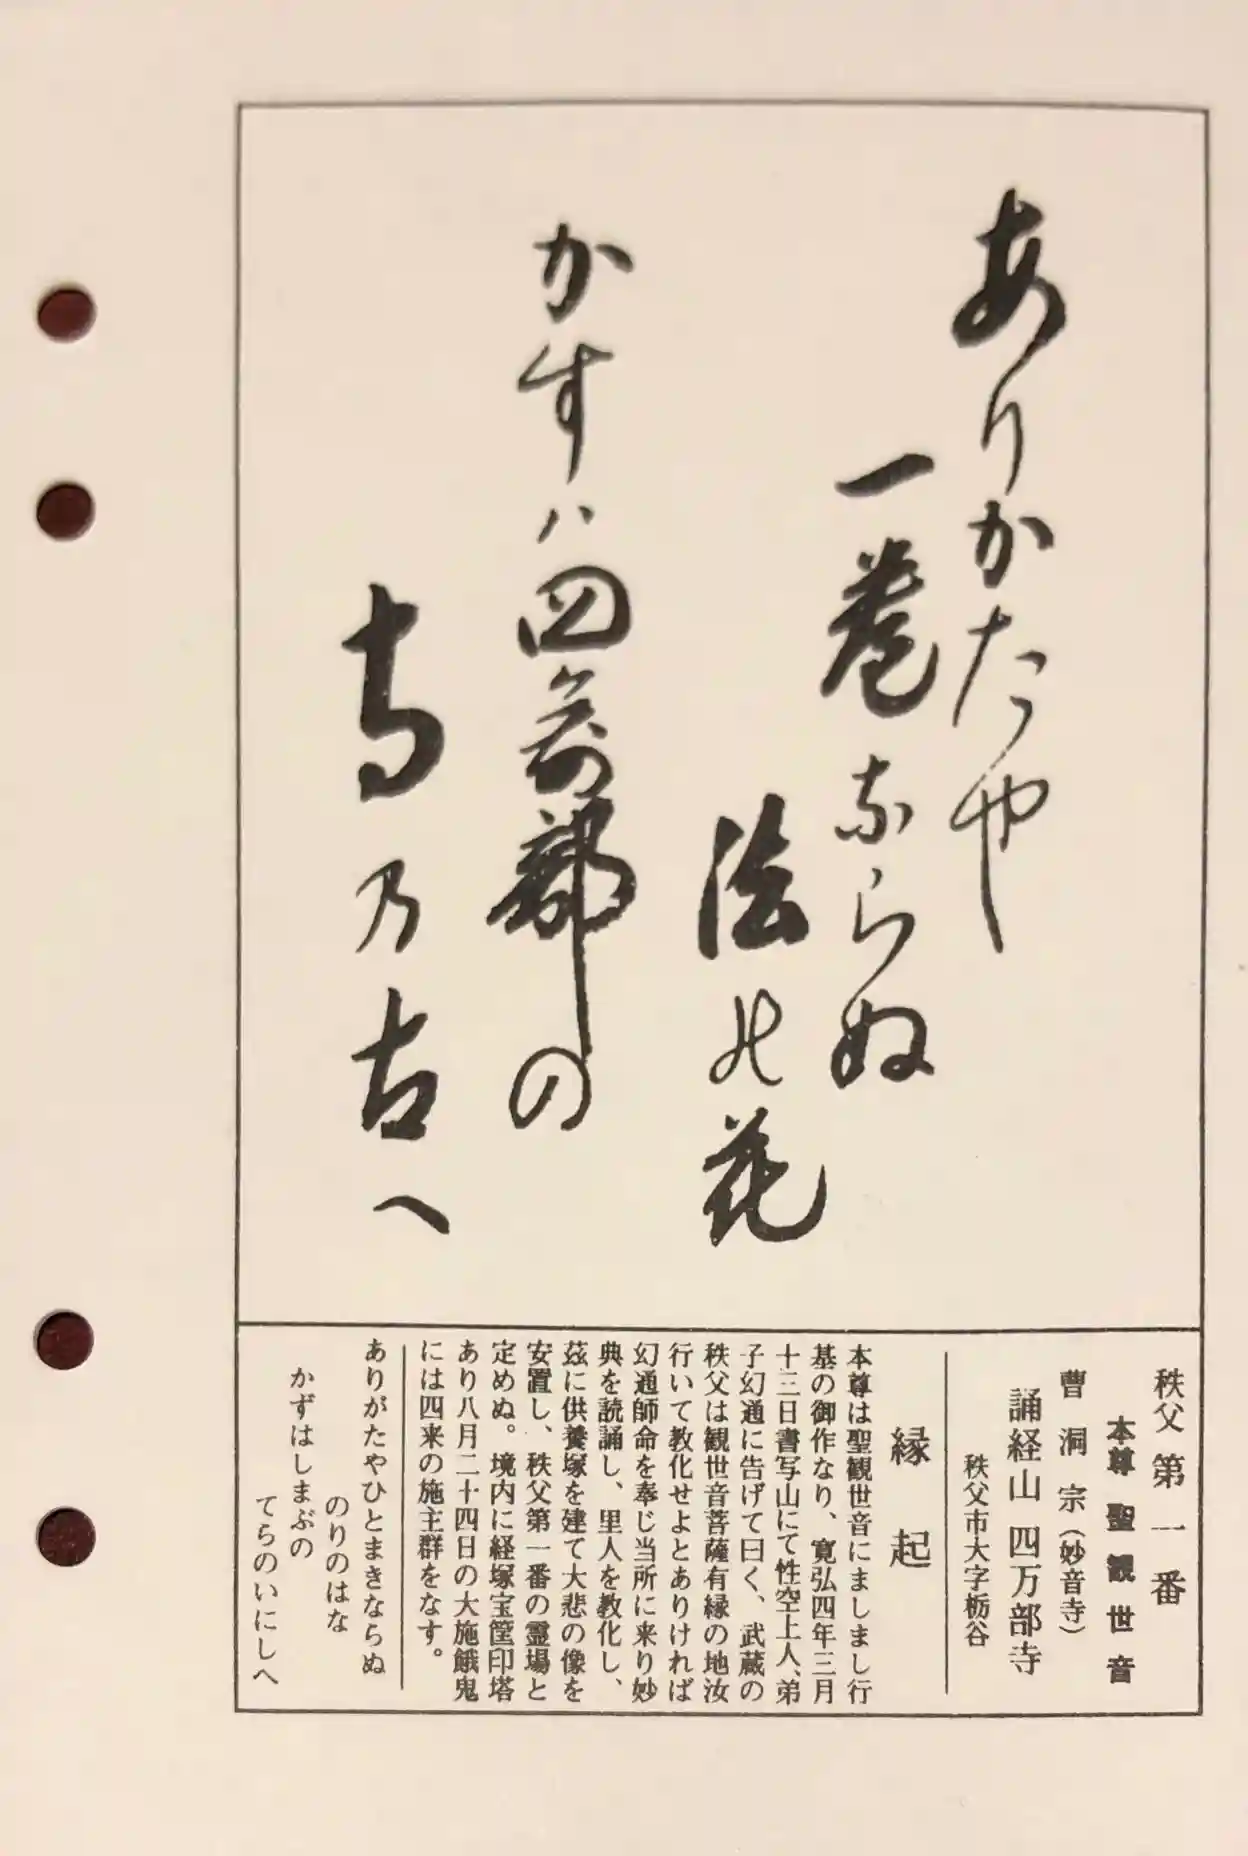 ありかたや
一巻ならぬ
法の花
かすハ四萬部の
寺乃古へ
秩父 第一番
本尊 聖観世音
曹洞宗（妙音寺）
誦経山 四万部寺
秩父市大字栃谷
縁起
本尊は聖観世音にましまし行
基の御作なり、寛弘四年三月
十三日書写山にて性空上人、弟
子幻通に告げて曰く、武蔵の
秩父は観世音菩薩有縁の地汝
行いて教化せよとありければ
幻通師命を奉じ当所に来り妙
典を読誦し、里人を教化し、
茲に供養塚を建て大悲の像を
安置し、秩父第一番の霊場と
定めぬ。境内に経塚宝筐印塔
あり八月二十四日の大施餓鬼
には四来の施主群をなす。
ありがたやひとまきならぬ
のりのはな
かずはしまぶの
てらのいにしへ